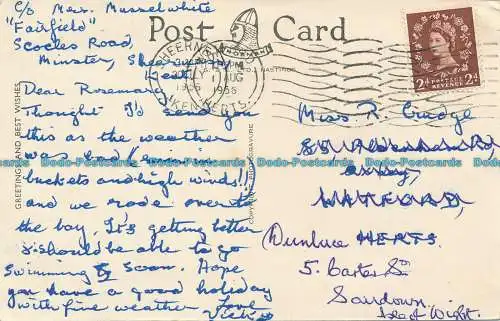 c/o Mrs. Musselwhite
"Fairfield"
Scocles Road,
Minster, Sheerness
Kent.
Post Card
NORMAN
SHEERNESS
1 AUG
1956
KENT
2D POSTAGE REVENUE 2D
GREETINGS AND BEST WISHES
Dear Rosemary
Thought I'd send you
this as the weather
was
buckets and high winds!
and we rode over to
the bay. It's getting better
& should be able to go
swimming soon. Hope
you have a good holiday
with fine weather Love
Miss R. Cudge
Rd
WATFORD,
HERTS.
Dunluce
5. Carter St
Sandown.
Isle of Wight.
Dodo-Postcards Dodo-Postcards Dodo-Postcards Dodo-Postcards